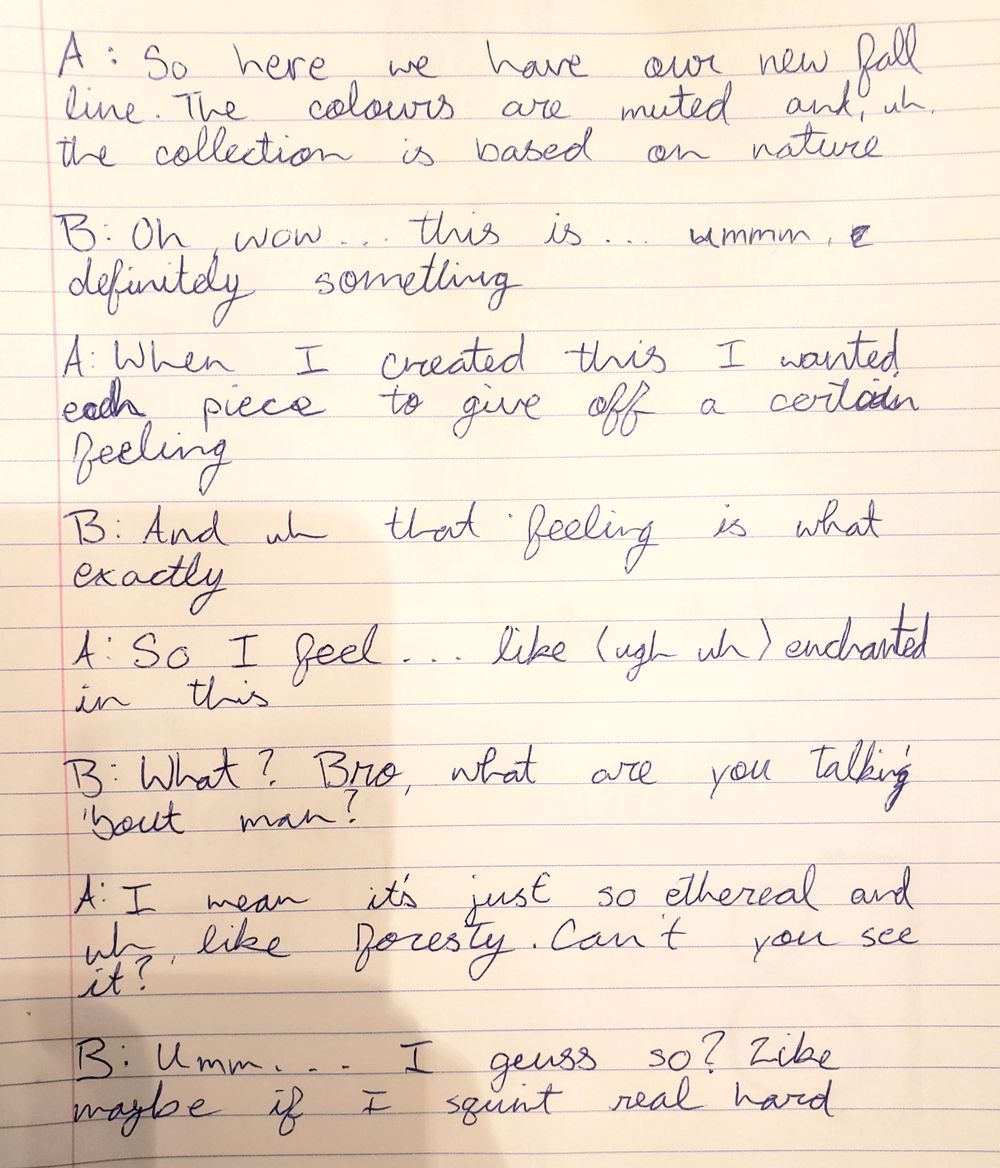 A: So here we have our new fall
line. The colours are muted and, uh,
the collection is based on nature
B: Oh, wow... this is... ummm,
definitely something
A: When I created this I wanted
each piece to give off a certain
feeling
B: And uh that feeling is what
exactly
A: So I feel... like (ugh uh) enchanted
in this
B: What? Bro, what are you talking
'bout man?
A: I mean it's just so ethereal and
uh, like foresty. Can't you see
it?
B: Umm.... I geuss so? Like
maybe if I squint real hard